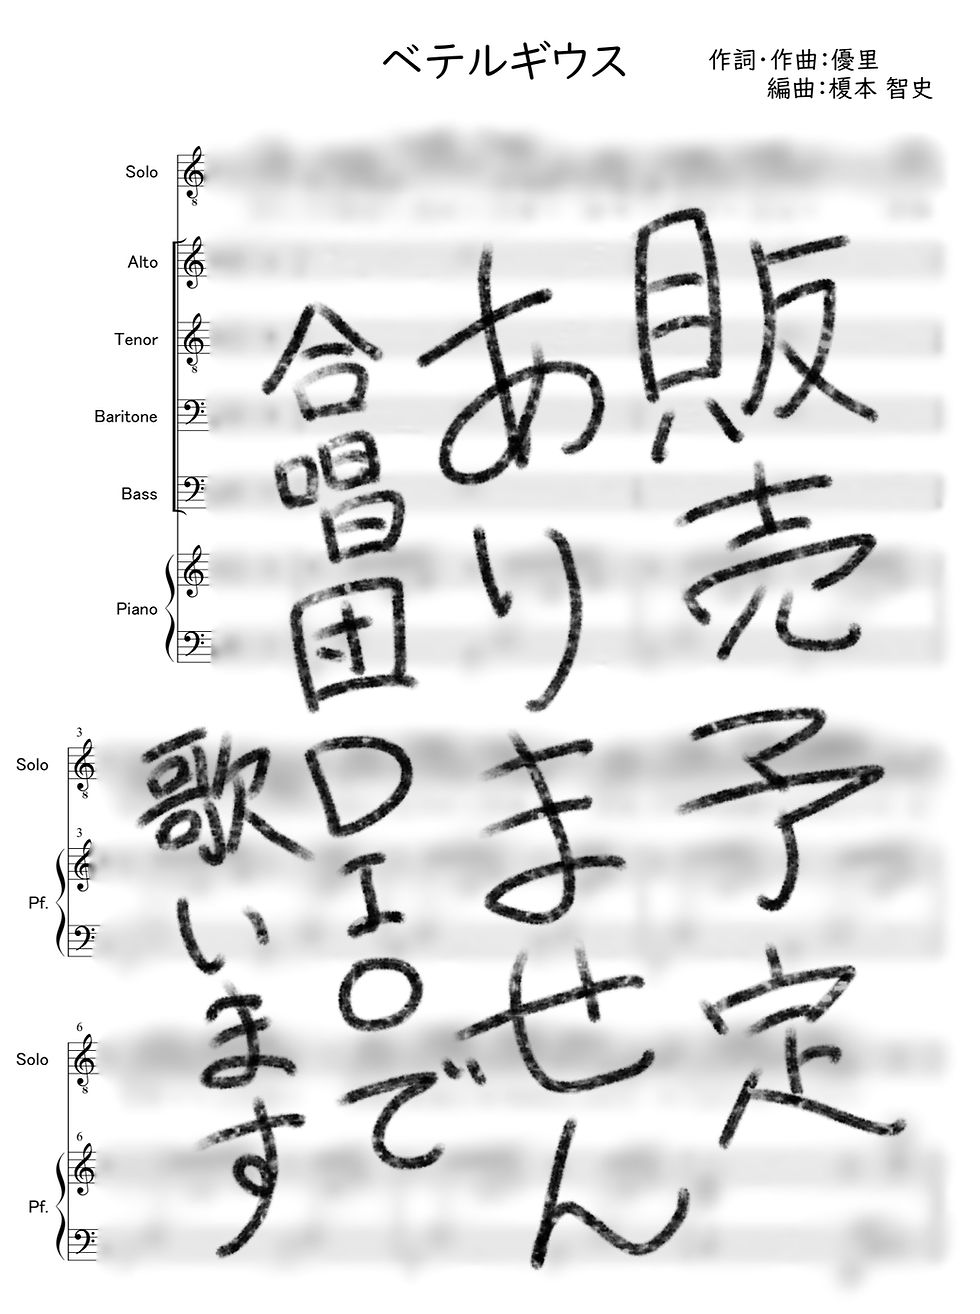 ベテルギウス
作詞・作曲：優里
編曲：榎本 智史
Solo
8
Alto
Tenor
8
Baritone
Bass
Piano
販売予定
ありません
合唱団DIOで
歌います
3
Solo
8
3
Pf.
6
Solo
8
6
Pf.